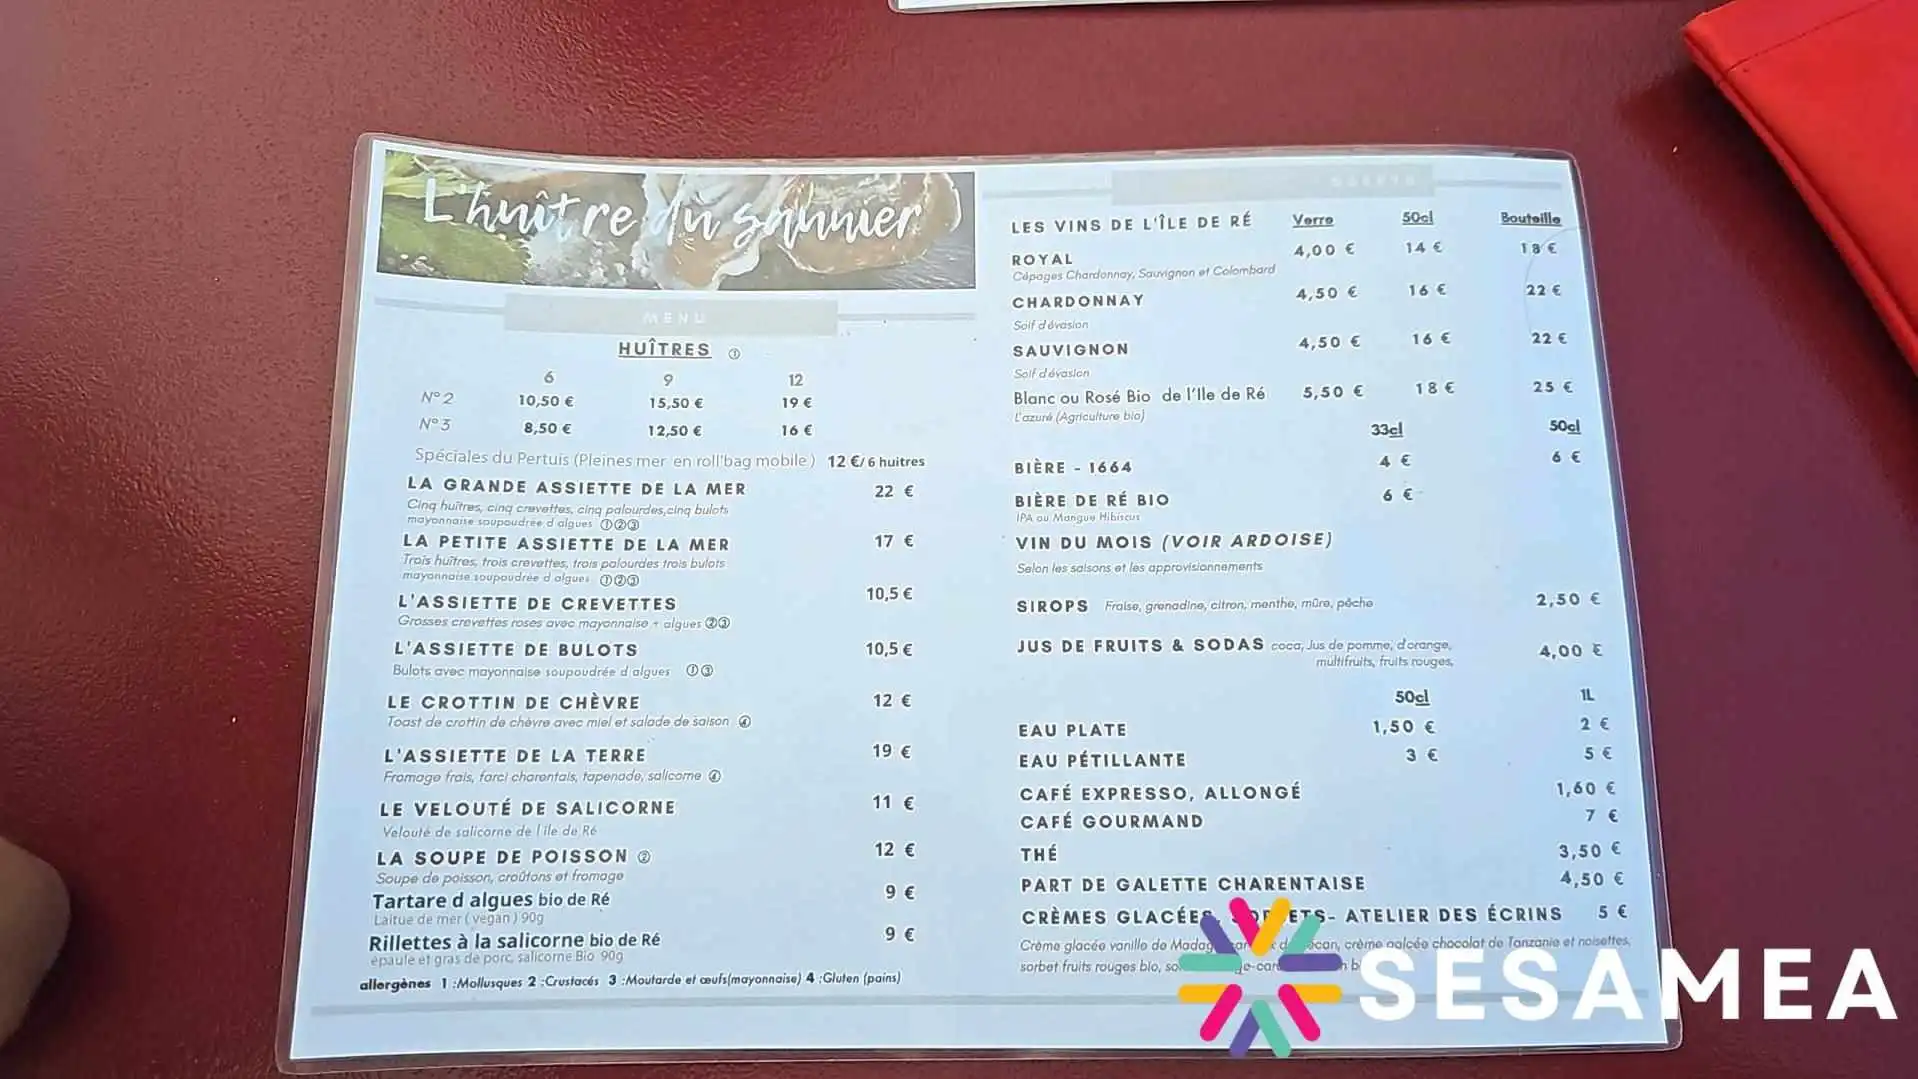 L'huître du saunier
MENU
HUÎTRES ①
6 9 12
N°2 10,50 € 15,50 € 19 €
N°3 8,50 € 12,50 € 16 €
Spéciales du Pertuis (Pleines mer en roll'bag mobile) 12 €/ 6 huitres
LA GRANDE ASSIETTE DE LA MER 22 €
Cinq huîtres, cinq crevettes, cinq palourdes,cinq bulots
mayonnaise soupoudrée d algues ①②③
LA PETITE ASSIETTE DE LA MER 17 €
Trois huîtres, trois crevettes, trois palourdes trois bulots
mayonnaise soupoudrée d algues ①②③
L'ASSIETTE DE CREVETTES 10,5 €
Grosses crevettes roses avec mayonnaise + algues ②③
L'ASSIETTE DE BULOTS 10,5 €
Bulots avec mayonnaise soupoudrée d algues ①③
LE CROTTIN DE CHÈVRE 12 €
Toast de crottin de chèvre avec miel et salade de saison ④
L'ASSIETTE DE LA TERRE 19 €
Fromage frais, farci charentais, tapenade, salicorne ④
LE VELOUTÉ DE SALICORNE 11 €
Velouté de salicorne de l île de Ré
LA SOUPE DE POISSON ② 12 €
Soupe de poisson, croûtons et fromage
Tartare d algues bio de Ré 9 €
Laitue de mer ( vegan ) 90g
Rillettes à la salicorne bio de Ré 9 €
épaule et gras de porc, salicorne Bio 90g
allergènes 1 :Mollusques 2 :Crustacés 3 :Moutarde et œufs(mayonnaise) 4 :Gluten (pains)
LES VINS DE L'ÎLE DE RÉ Verre 50cl Bouteille
ROYAL 4,00 € 14 € 18 €
Cépages Chardonnay, Sauvignon et Colombard
CHARDONNAY 4,50 € 16 € 22 €
Soif d'évasion
SAUVIGNON 4,50 € 16 € 22 €
Soif d'évasion
Blanc ou Rosé Bio de l'Ile de Ré 5,50 € 18 € 25 €
L'azuré (Agriculture bio)
33cl 50cl
BIÈRE - 1664 4 € 6 €
BIÈRE DE RÉ BIO 6 €
IPA ou Mangue Hibiscus
VIN DU MOIS (VOIR ARDOISE)
Selon les saisons et les approvisionnements
SIROPS Fraise, grenadine, citron, menthe, mûre, pêche 2,50 €
JUS DE FRUITS & SODAS coca, Jus de pomme, d'orange, 4,00 €
multifruits, fruits rouges,
50cl 1L
EAU PLATE 1,50 € 2 €
EAU PÉTILLANTE 3 € 5 €
CAFÉ EXPRESSO, ALLONGÉ 1,60 €
CAFÉ GOURMAND 7 €
THÉ 3,50 €
PART DE GALETTE CHARENTAISE 4,50 €
CRÈMES GLACÉES, - ATELIER DES ÉCRINS 5 €
Crème glacée vanille de crème galcée chocolat de Tanzanie et noisettes,
sorbet fruits rouges bio,
SESAMEA